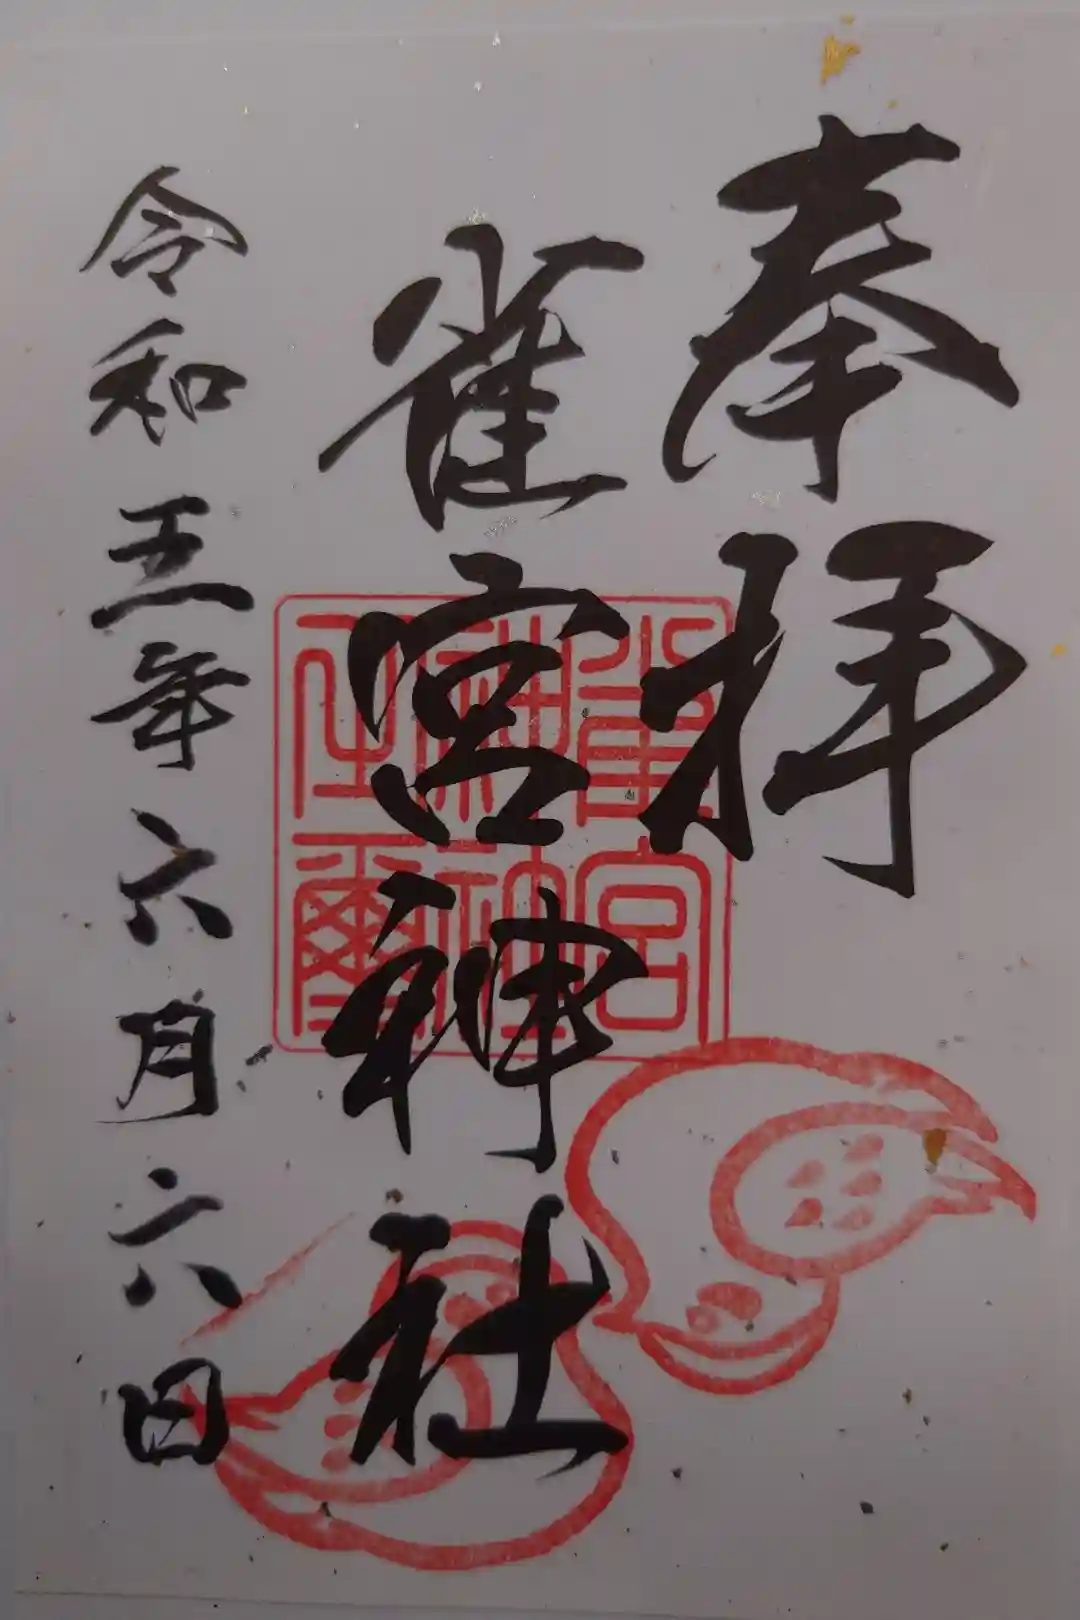 奉拝
雀宮神社
雀宮
神社
之璽
令和五年六月六日